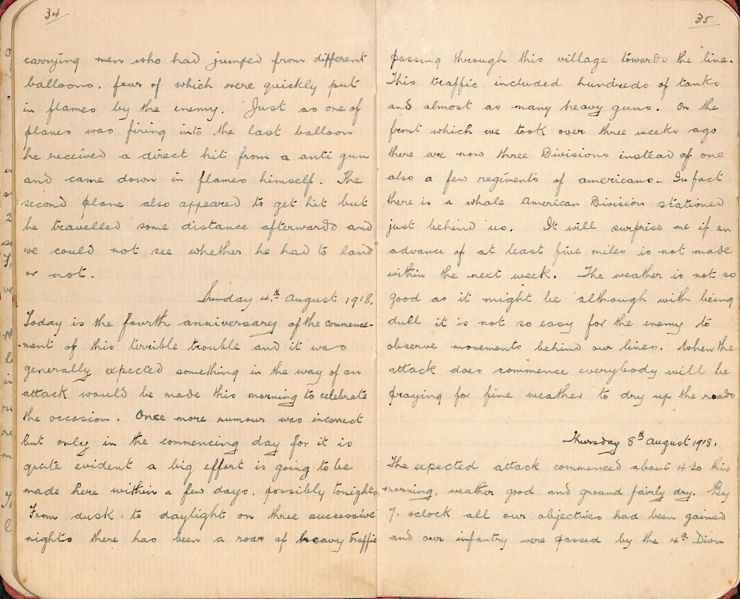 34
carrying men who had jumped from different
balloons, four of which were quickly put
in flames by the enemy. Just as one of
planes was firing into the last balloon
he received a direct hit from a anti gun
and came down in flames himself. The
second plane also appeared to get hit but
he travelled some distance afterwards and
we could not see whether he had to land
or not.
Sunday 4th August 1918.
Today is the fourth anniversary of the commence-
ment of this terrible trouble and it was
generally expected something in the way of an
attack would be made this morning to celebrate
the occasion. Once more rumour was incorrect
but only in the commencing day for it is
quite evident a big effort is going to be
made here within a few days, possibly tonight.
From dusk to daylight on three successive
nights there has been a roar of heavy traffic
35
passing through this village towards the line.
This traffic included hundreds of tanks
and almost as many heavy guns. On the
front which we took over three weeks ago
there are now three Divisions instead of one
also a few regiments of americans. In fact
there is a whole American Division stationed
just behind us. It will surprise me if an
advance of at least five miles is not made
within the next week. The weather is not so
good as it might be although with being
dull it is not so easy for the enemy to
observe movements behind our lines. When the
attack does commence everybody will be
praying for fine weather to dry up the roads
Thursday 8th August 1918.
The expected attack commenced about 4.20 this
morning, weather good and ground fairly dry. By
7. oclock all our objectives had been gained
and our infantry were passed by the 4th Divn